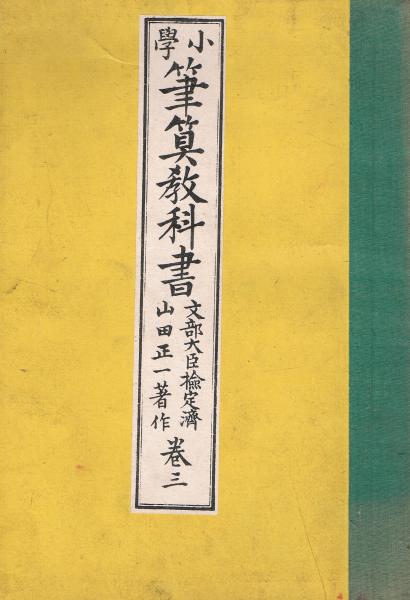 小學
筆算教科書
文部大臣檢定濟
山田正一著作
卷三